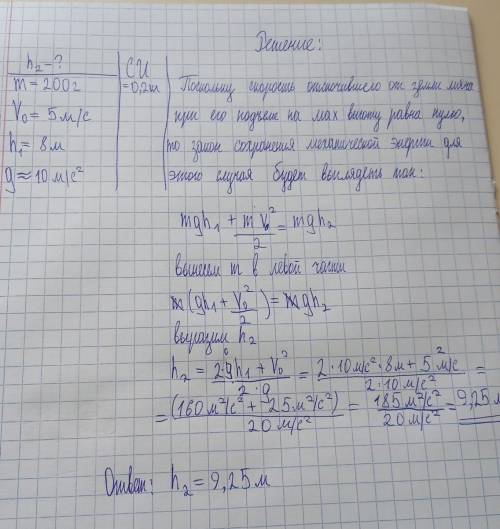 Решение:
h₂ - ?
m = 200г
V₀ = 5 м/с
h₁ = 8м
g ≈ 10 м/с²
СИ
= 0,2
Поскольку скорость отскочившего от земли мяча
при его подъеме на мах высоту равна нулю,
то закон сохранения механической энергии для
этого случая будет выглядеть так:
mgh₁ + mV₀²/2 = mgh₂
вынесем m в левой части
m(gh₁ + V₀²/2) = mgh₂
выразим h₂
h₂ = (2·gh₁ + V₀²)/(2·g) = (2·10 м/с²·8м + 5² м/с)/(2·10 м/с²) =
= (160 м²/с² + 25 м²/с²)/(20 м/с²) = (185 м²/с²)/(20 м/с²) = 9,25 м
Ответ: h₂ = 9,25 м